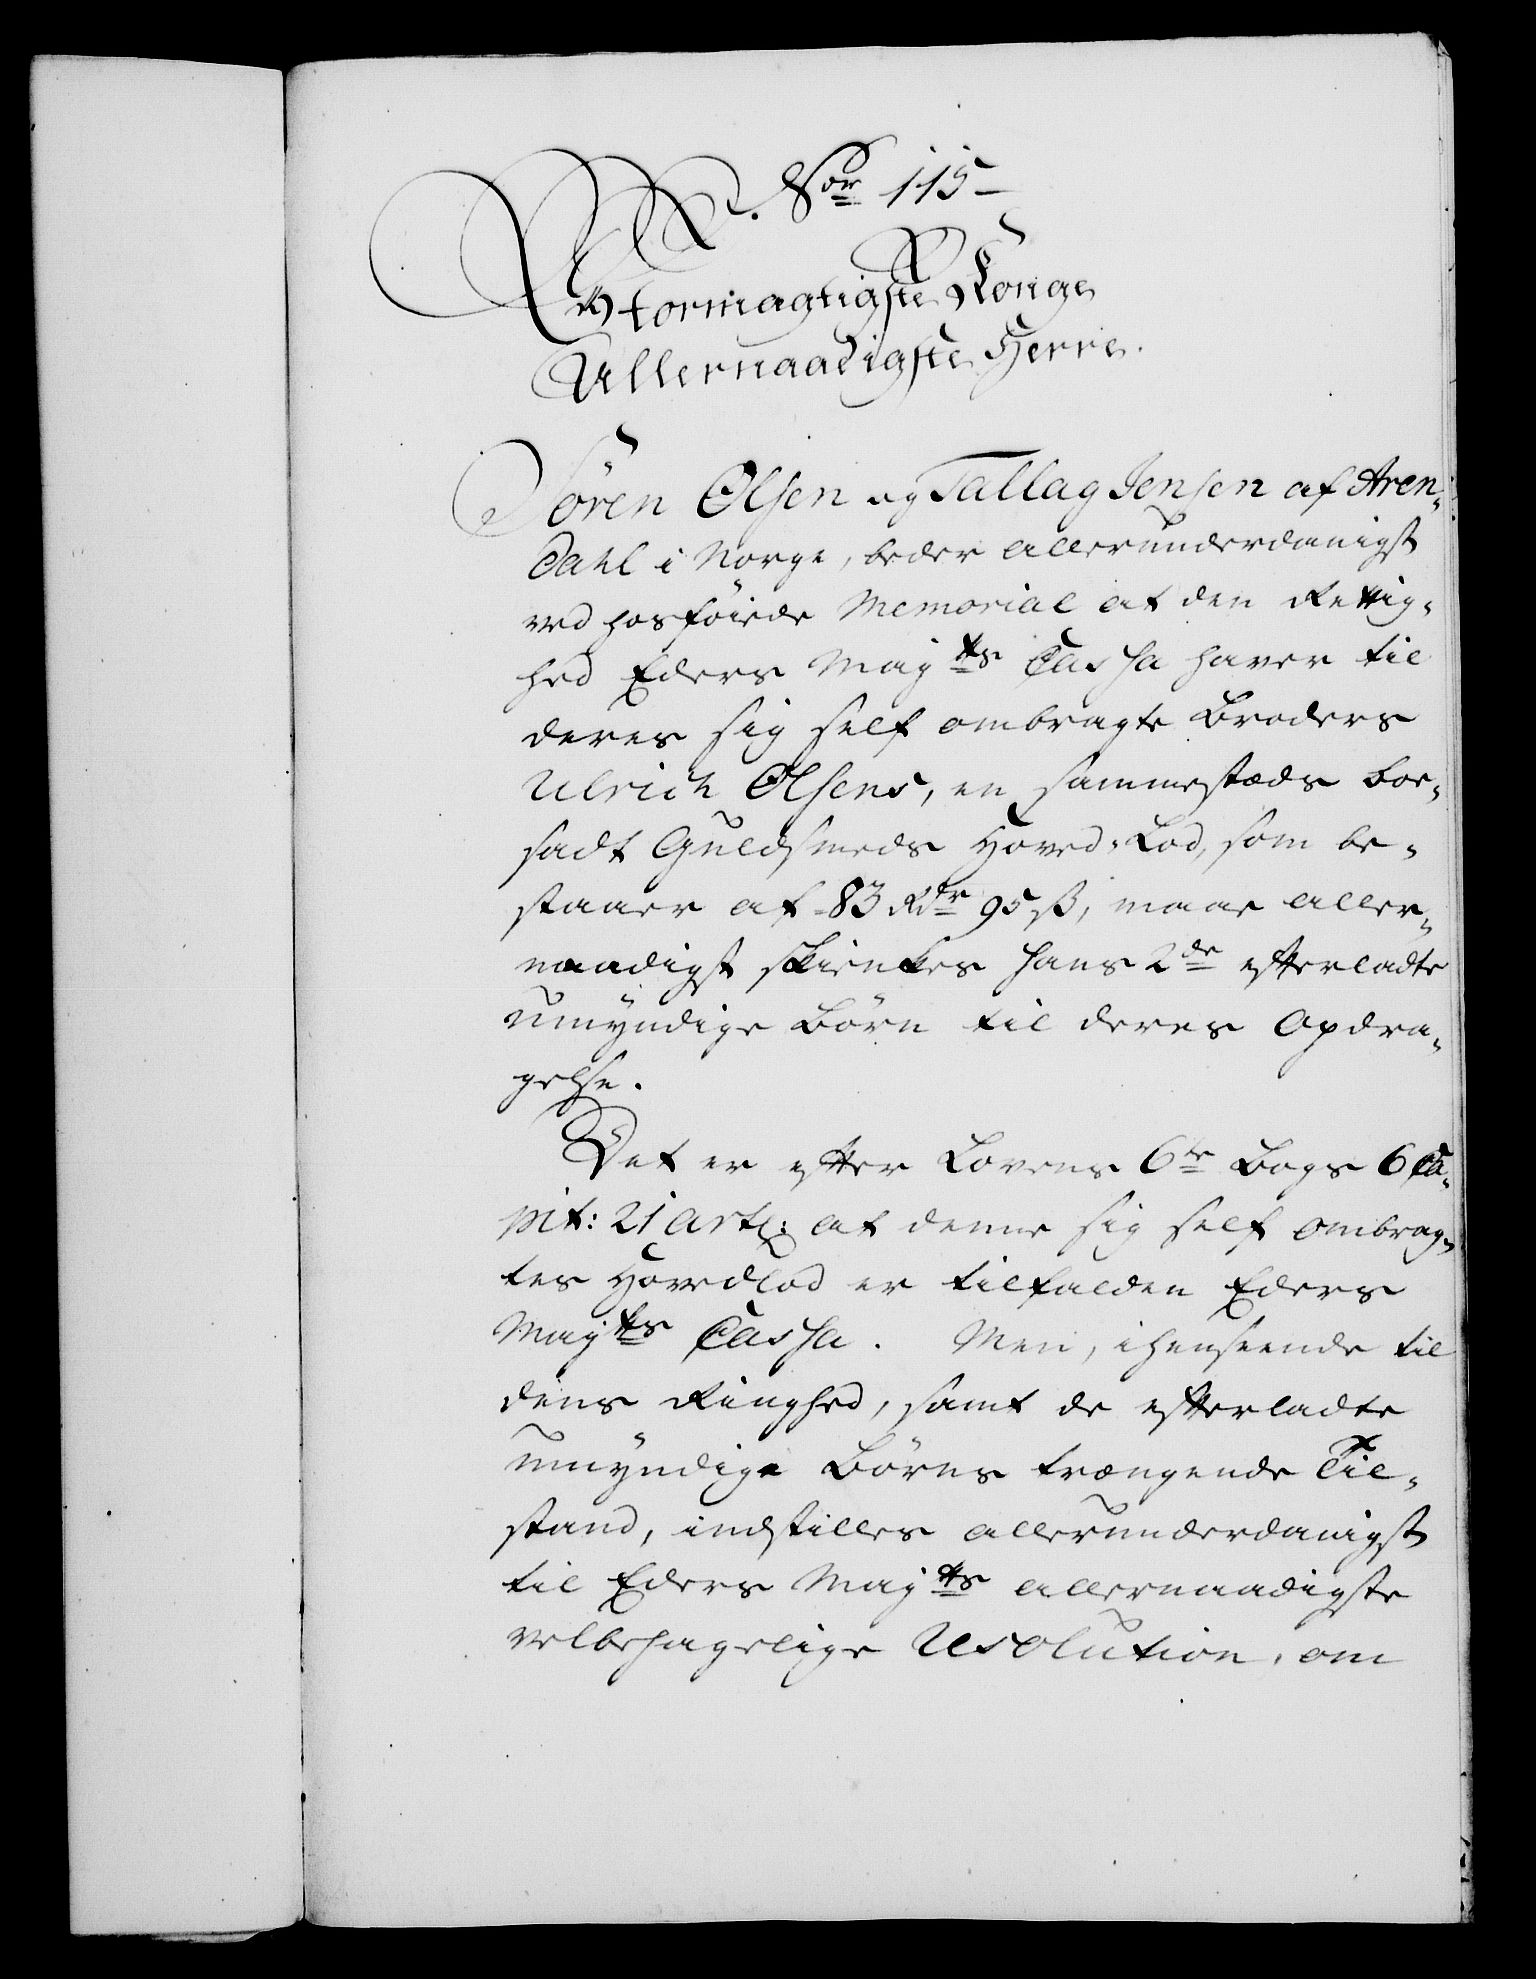 Nor 115
Stormægtigste Konge
Allernaadigste Herre.
Sören Olsen og Tallag Jensen af Aren-
dahl i Norge, beder allerunderdanigst
ved hosföiede Memorial at den Rettig-
hed Eders Mayts Cassa haver til
deres sig self ombragte Broders
Ulrich Olsens, en sammestæds boe-
sadt Guldsmeds Hoved-Lod, som be-
staaer af 83 Rdr 95 ß, maae aller-
naadigst skienkes hans 2de efterladte
umÿndige Börn til deres Opdra-
gelse.
Det er efter Lovens 6te Bogs 6 Ca-
pit: 21 Artl: at denne sig self ombrag-
tes Hovedlod er tilfalden Eders
Mayts Cassa. Men, i henseende til
dens Ringhed, samt de efterladte
umÿndige Börns trængende Til-
stand, indstilles allerunderdanigst
til Eders Mayts allernaadigste
velbehagelige Resolution, om